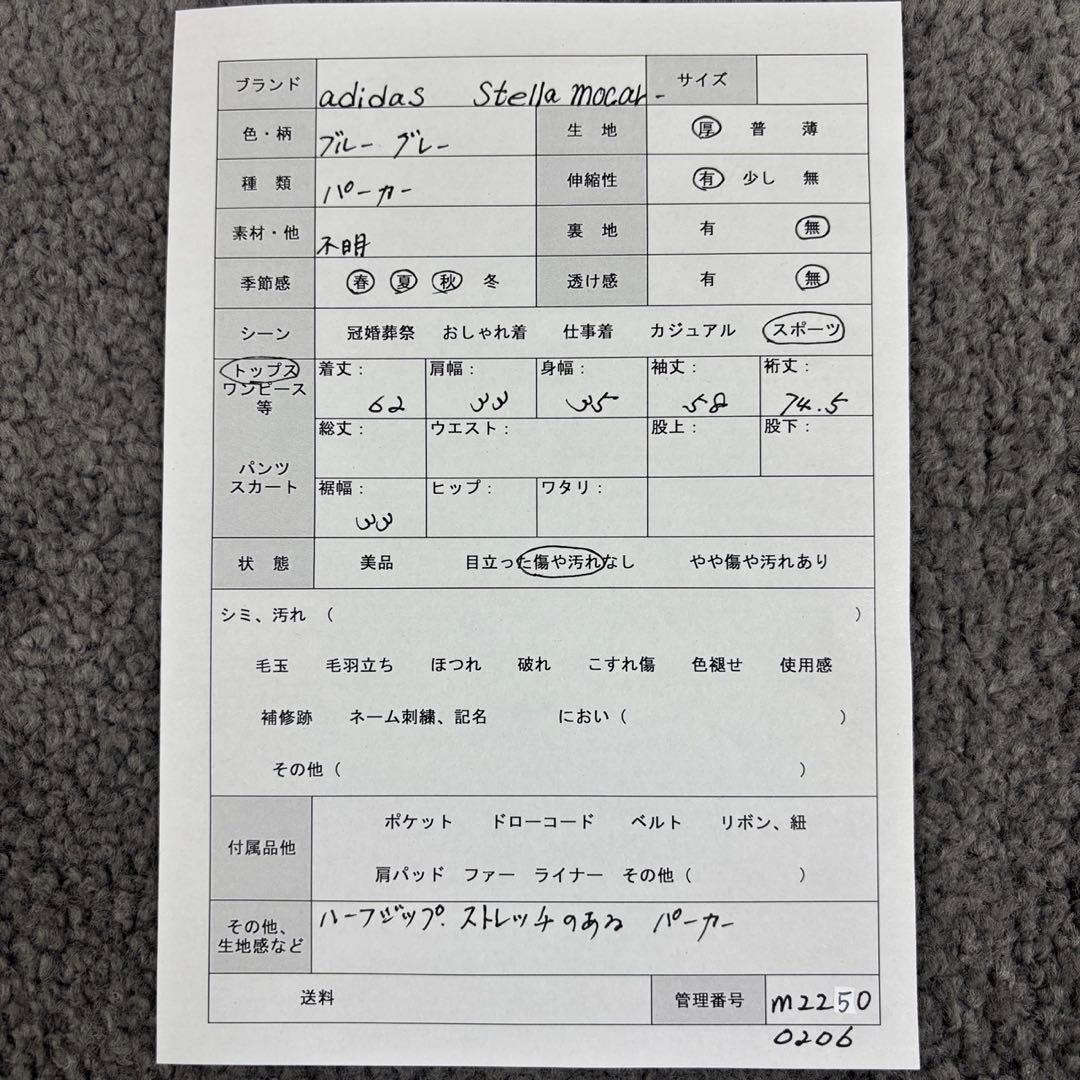 ブランド adidas Stella mocar- サイズ
色・柄 ブルー グレー 生地 厚 普 薄
種類 パーカー 伸縮性 有 少し 無
素材・他 不明 裏地 有 無
季節感 春 夏 秋 冬 透け感 有 無
シーン 冠婚葬祭 おしゃれ着 仕事着 カジュアル スポーツ
トップス ワンピース 等 着丈: 62 肩幅: 33 身幅: 35 袖丈: 58 裄丈: 74.5
パンツ スカート 総丈: ウエスト: 股上: 股下:
裾幅: 33 ヒップ: ワタリ:
状態 美品 目立った傷や汚れなし やや傷や汚れあり
シミ、汚れ ( )
毛玉 毛羽立ち ほつれ 破れ こすれ傷 色褪せ 使用感
補修跡 ネーム刺繍、記名 におい ( )
その他 ( )
付属品他 ポケット ドローコード ベルト リボン、紐
肩パッド ファー ライナー その他 ( )
その他、生地感など ハーフジップ.ストレッチのある パーカー
送料 管理番号 m2250
0206